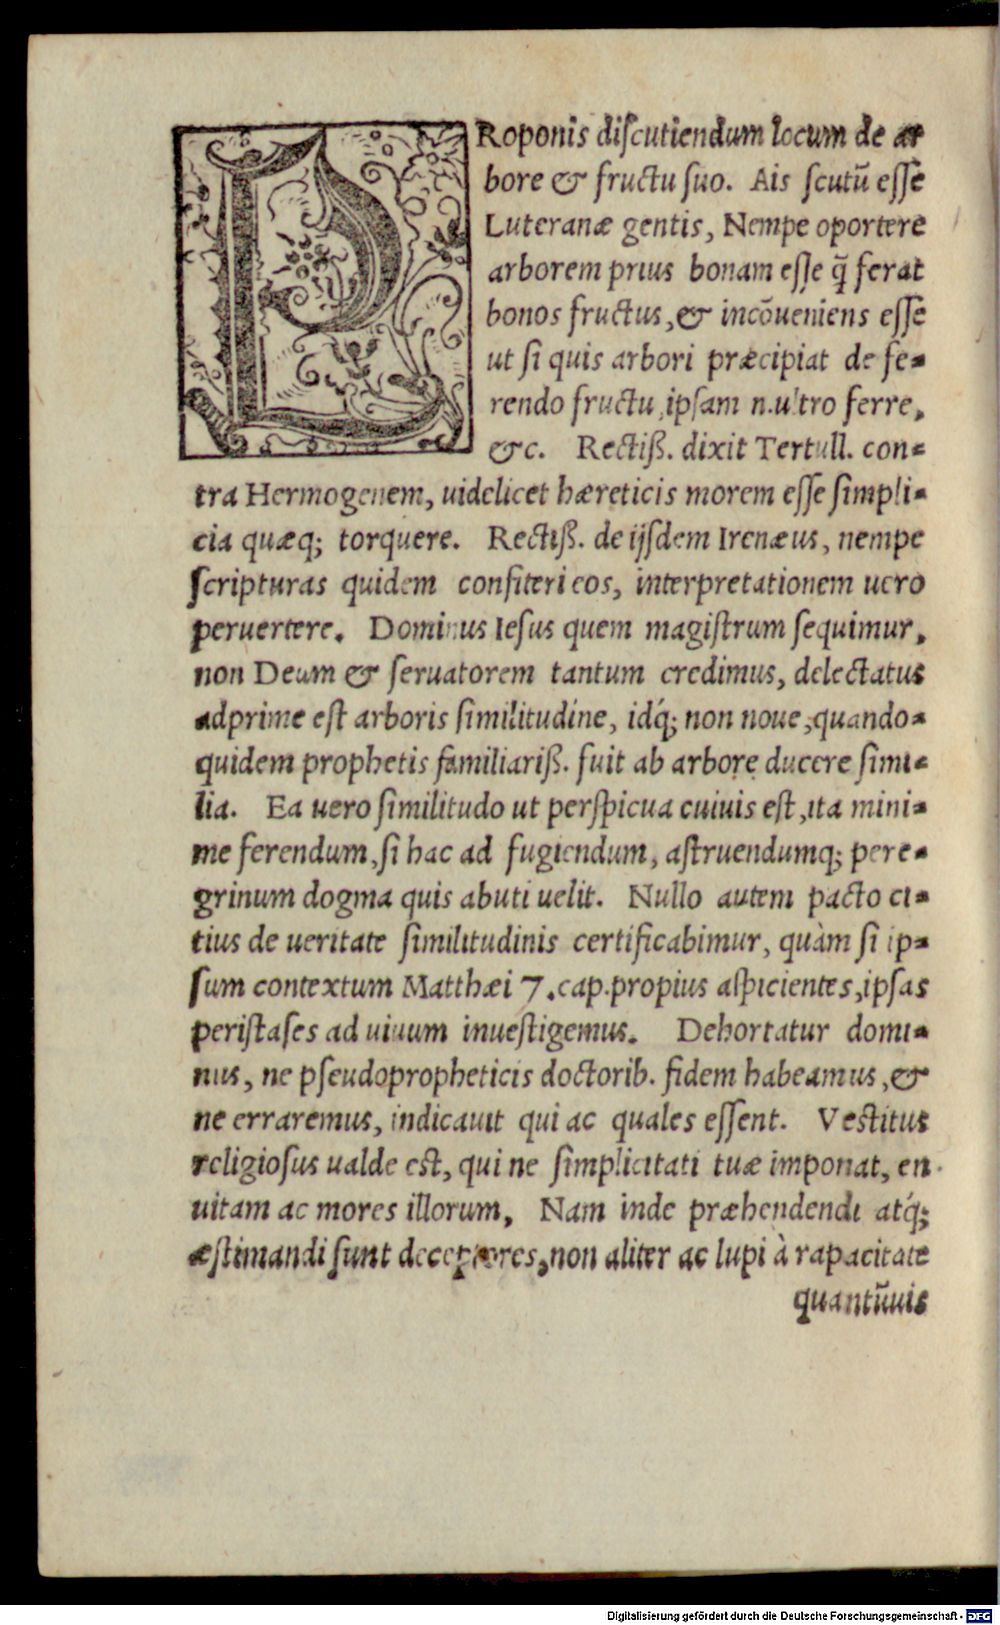 PRoponis discutiendum locum de ar
bore & fructu suo. Ais scutũ esse
Luteranæ gentis, Nempe oportere
arborem prius bonam esse q̃ ferat
bonos fructus, & incõueniens esse
ut si quis arbori præcipiat de fe-
rendo fructu, ipsam n. ultro ferre,
&c. Rectiß. dixit Tertull. con-
tra Hermogenem, uidelicet hæreticis morem esse simpli-
cia quæq; torquere. Rectiß. de ijsdem Irenæus, nempe
scripturas quidem confiteri eos, interpretationem uero
peruertere. Dominus Iesus quem magistrum sequimur,
non Deum & seruatorem tantum credimus, delectatus
adprime est arboris similitudine, idq́; non noue, quando-
quidem prophetis familiariß. fuit ab arbore ducere simi-
lia. Ea uero similitudo ut perspicua cuiuis est, ita mini-
me ferendum, si hac ad fugiendum, astruendumq; pere-
grinum dogma quis abuti uelit. Nullo autem pacto ci-
tius de ueritate similitudinis certificabimur, quàm si ip-
sum contextum Matthæi 7. cap. propius aspicientes, ipsas
peristases ad uiuum inuestigemus. Dehortatur domi-
nus, ne pseudopropheticis doctorib. fidem habeamus, &
ne erraremus, indicauit qui ac quales essent. Vestitus
religiosus ualde est, qui ne simplicitati tuæ imponat, en
uitam ac mores illorum, Nam inde præhendendi atq́;
æstimandi sunt deceptores, non aliter ac lupi à rapacitate
quantũuis
Digitalisierung gefördert durch die Deutsche Forschungsgemeinschaft - DFG